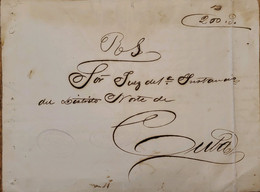 200
R S
Sor Juez de 1ª Instancia
del Distrito Norte de
Cuba